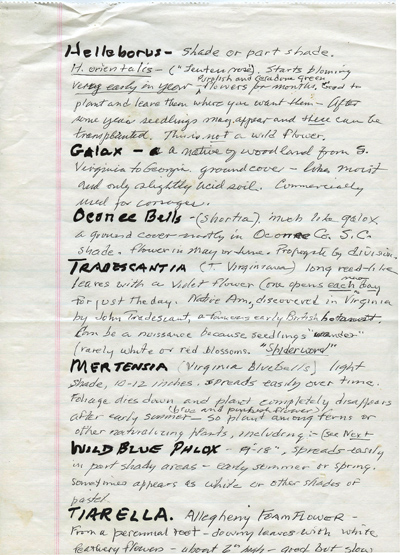 Helleborus - Shade or part shade.
H. orientalis - ("Lenten rose"). Starts blooming
Purplish and Celadone Green
very early in year flowers for months. Good to
plant and leave them where you want them - After
some years seedlings may appear and these can be
transplanted. This is not a wild flower.
Galax - a native of woodland from S.
Virginia to Georgia. ground cover - likes moist
and only slightly acid soil. Commercially
used for corsages.
Oconee Bells - (Shortia). much like galax
a ground cover mostly in Oconee Co. S.C.
shade. flower in may or June. Propagate by division.
TRADESCANTIA (T. Virginiana) long reed-like
leaves with a Violet flower (one opens each day
for just the day. Native Am, discovered in Virginia
by John Tradescant, a famous early British botanist.
Can be a nuisance because seedlings "wander"
(rarely white or red blossoms. "Spiderword"
MERTENSIA (Virginia Bluebells) light
shade, 10-12 inches. spreads easily over time.
Foliage dies down and plant completely disappears
(blue and pinkish flowers)
after early summer - so plant among ferns or
other naturalizing plants, including - (see Next
WILD BLUE PHLOX - 9-18", spreads easily
in part shady areas - early summer or spring.
sometimes appears as white or other shades of
pastel.
TIARELLA. Allegheny FOAMFLOWER -
From a perennial root - downy leaves with white
feathery flowers - about 6" high - good but slow